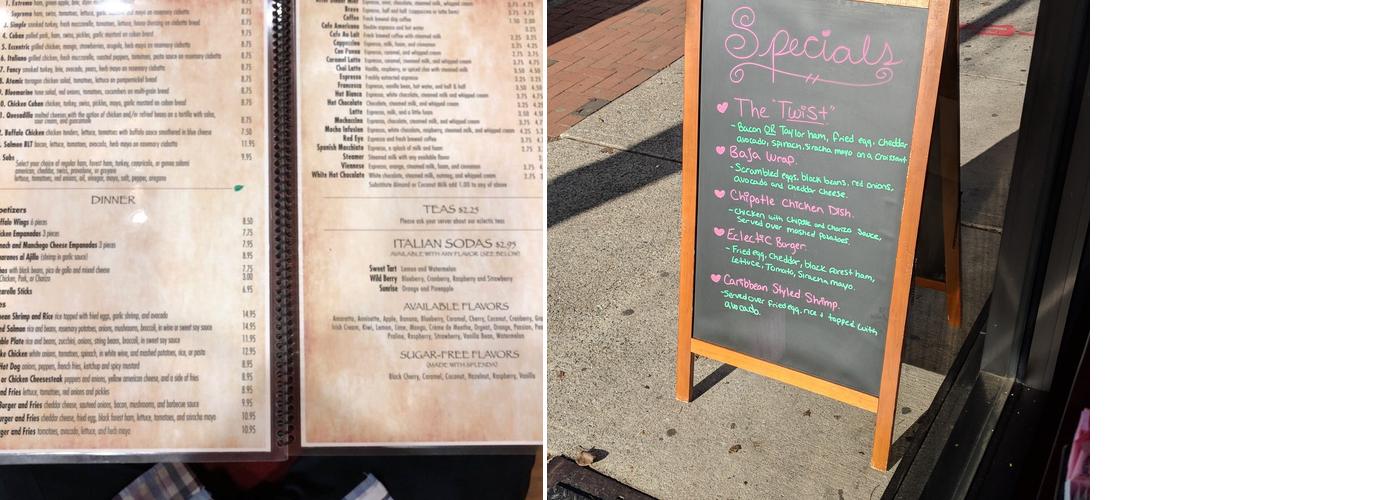 1. Extremo ham, green apple, brie,
Supremo swiss, tomatoes, lettuce, honey dressing on ciabatta bread
3. Simple smoked turkey, fresh mozzarella, tomatoes, lettuce, honey dressing on ciabatta bread 8.75
4. Cuban pulled pork, ham, swiss, pickles, garlic mustard on cuban bread 9.75
5. Eccentric grilled chicken, mango, strawberries, arugula, herb mayo on rosemary ciabatta 8.75
6. Italiano grilled chicken, fresh mozzarella, roasted peppers, tomatoes, pesto sauce on rosemary ciabatta 8.75
7. Fancy smoked turkey, brie, avocado, pears, herb mayo on rosemary ciabatta 8.75
8. Atomic tarragon chicken salad, tomatoes, lettuce on pumpernickel bread 8.75
9. Bluemarine tuna salad, red onions, tomatoes, cucumbers on multi-grain bread 8.75
0. Chicken Cuban chicken, turkey, swiss, pickles, mayo, garlic mustard on cuban bread 8.75
1. Quesadilla melted cheeses with the option of chicken and/or refried beans on a tortilla with salsa, 8.75
sour cream, and guacamole
2. Buffalo Chicken chicken tenders, lettuce, tomatoes with buffalo sauce smothered in blue cheese 7.50
Salmon BLT bacon, lettuce, tomatoes, avocado, herb mayo on rosemary ciabatta 11.95
Subs 9.95
Select your choice of regular ham, forest ham, turkey, cappricola, or genoa salami
american, cheddar, swiss, provolone, or gouda
lettuce, tomatoes, red onions, oil, vinegar, mayo, salt, pepper, oregano
DINNER
petizers
ffalo Wings 6 pieces 8.50
icken Empanadas 3 pieces 7.75
nach and Manchego Cheese Empanadas 3 pieces 7.95
marones al Ajillo (shrimp in garlic sauce) 8.95
hos with black beans, pico de gallo and mixed cheese 7.75
Chicken, Pork, or Chorizo 3.00
zarella Sticks 6.95
es
bean Shrimp and Rice rice topped with fried eggs, garlic shrimp, and avocado 14.95
ed Salmon rice and beans, rosemary potatoes, onions, mushrooms, broccoli, in wine or sweet soy sauce 14.95
able Plate rice and beans, zucchini, onions, string beans, broccoli, in sweet soy sauce 11.95
ke Chicken white onions, tomatoes, spinach, in white wine, and mashed potatoes, rice, or pasta 12.95
Hot Dog onions, peppers, french fries, ketchup and spicy mustard 8.95
or Chicken Cheesesteak peppers and onions, yellow american cheese, and a side of fries 8.95
and Fries lettuce, tomatoes, red onions and pickles 8.95
Burger and Fries cheddar cheese, sauteed onions, bacon, mushrooms, and barbecue sauce 9.95
urger and Fries cheddar cheese, fried egg, black forest ham, lettuce, tomatoes, and sriracha mayo 10.95
ger and Fries tomatoes, avocado, lettuce, and herb mayo 10.95
Espresso, milk, chocolate, steamed milk, and whipped cream
Breve Espresso, half and half (cappuccino or latte form)
Coffee Fresh brewed drip coffee
Cafe Americano Double espresso and hot water
Cafe Au Lait Fresh brewed coffee with steamed milk
Cappuccino Espresso, milk, foam, and cinnamon
Con Panna Espresso, caramel, and whipped cream
Caramel Latte Espresso, caramel, steamed milk, and whipped cream
Chai Latte Vanilla, raspberry, or spiced chai with steamed milk
Espresso Freshly extracted espresso
Francesca Espresso, vanilla bean, hot water, and half & half
Hot Bianca Espresso, white chocolate, steamed milk, and whipped cream
Hot Chocolate Chocolate, steamed milk, and whipped cream
Latte Espresso, milk, and a little foam
Mochaccino Espresso, chocolate, steamed milk, and whipped cream
Mocha Infusion Espresso, white chocolate, raspberry, steamed milk, and whipped cream
Red Eye Espresso and fresh brewed coffee
Spanish Macchiato Espresso, a splash of milk and foam
Steamer Steamed milk with any available flavor
Viennese Espresso, orange, steamed milk, foam, and cinnamon
White Hot Chocolate White chocolate, steamed milk, nutmeg, and whipped cream
Substitute Almond or Coconut Milk add 1.00 to any of above
TEAS $2.25
Please ask your server about our eclectic teas
ITALIAN SODAS $2.95
AVAILABLE WITH ANY FLAVOR (SEE BELOW)
Sweet Tart Lemon and Watermelon
Wild Berry Blueberry, Cranberry, Raspberry and Strawberry
Sunrise Orange and Pineapple
AVAILABLE FLAVORS
Amaretto, Annisette, Apple, Banana, Blueberry, Caramel, Cherry, Coconut, Cranberry, Gra
Irish Cream, Kiwi, Lemon, Lime, Mango, Crème de Menthe, Orgeat, Orange, Passion, Pea
Praline, Raspberry, Strawberry, Vanilla Bean, Watermelon
SUGAR-FREE FLAVORS
(MADE WITH SPLENDA)
Black Cherry, Caramel, Coconut, Hazelnut, Raspberry, Vanilla
Specials
The "Twist"
- Bacon OR Taylor ham, fried egg, cheddar
avocado, spinach, Siracha mayo on a Croissant
Baja Wrap.
- Scrambled eggs, black beans, red onions,
avocado and cheddar cheese.
Chipotle Chicken Dish.
- chicken with chipotle and chorizo sauce,
Served over mashed potatoes.
Eclectic Burger.
- Fried egg, cheddar, black forest ham,
lettuce, Tomato, Siracha mayo.
Caribbean Styled Shrimp.
- Served over fried egg, rice + topped with
avocado.